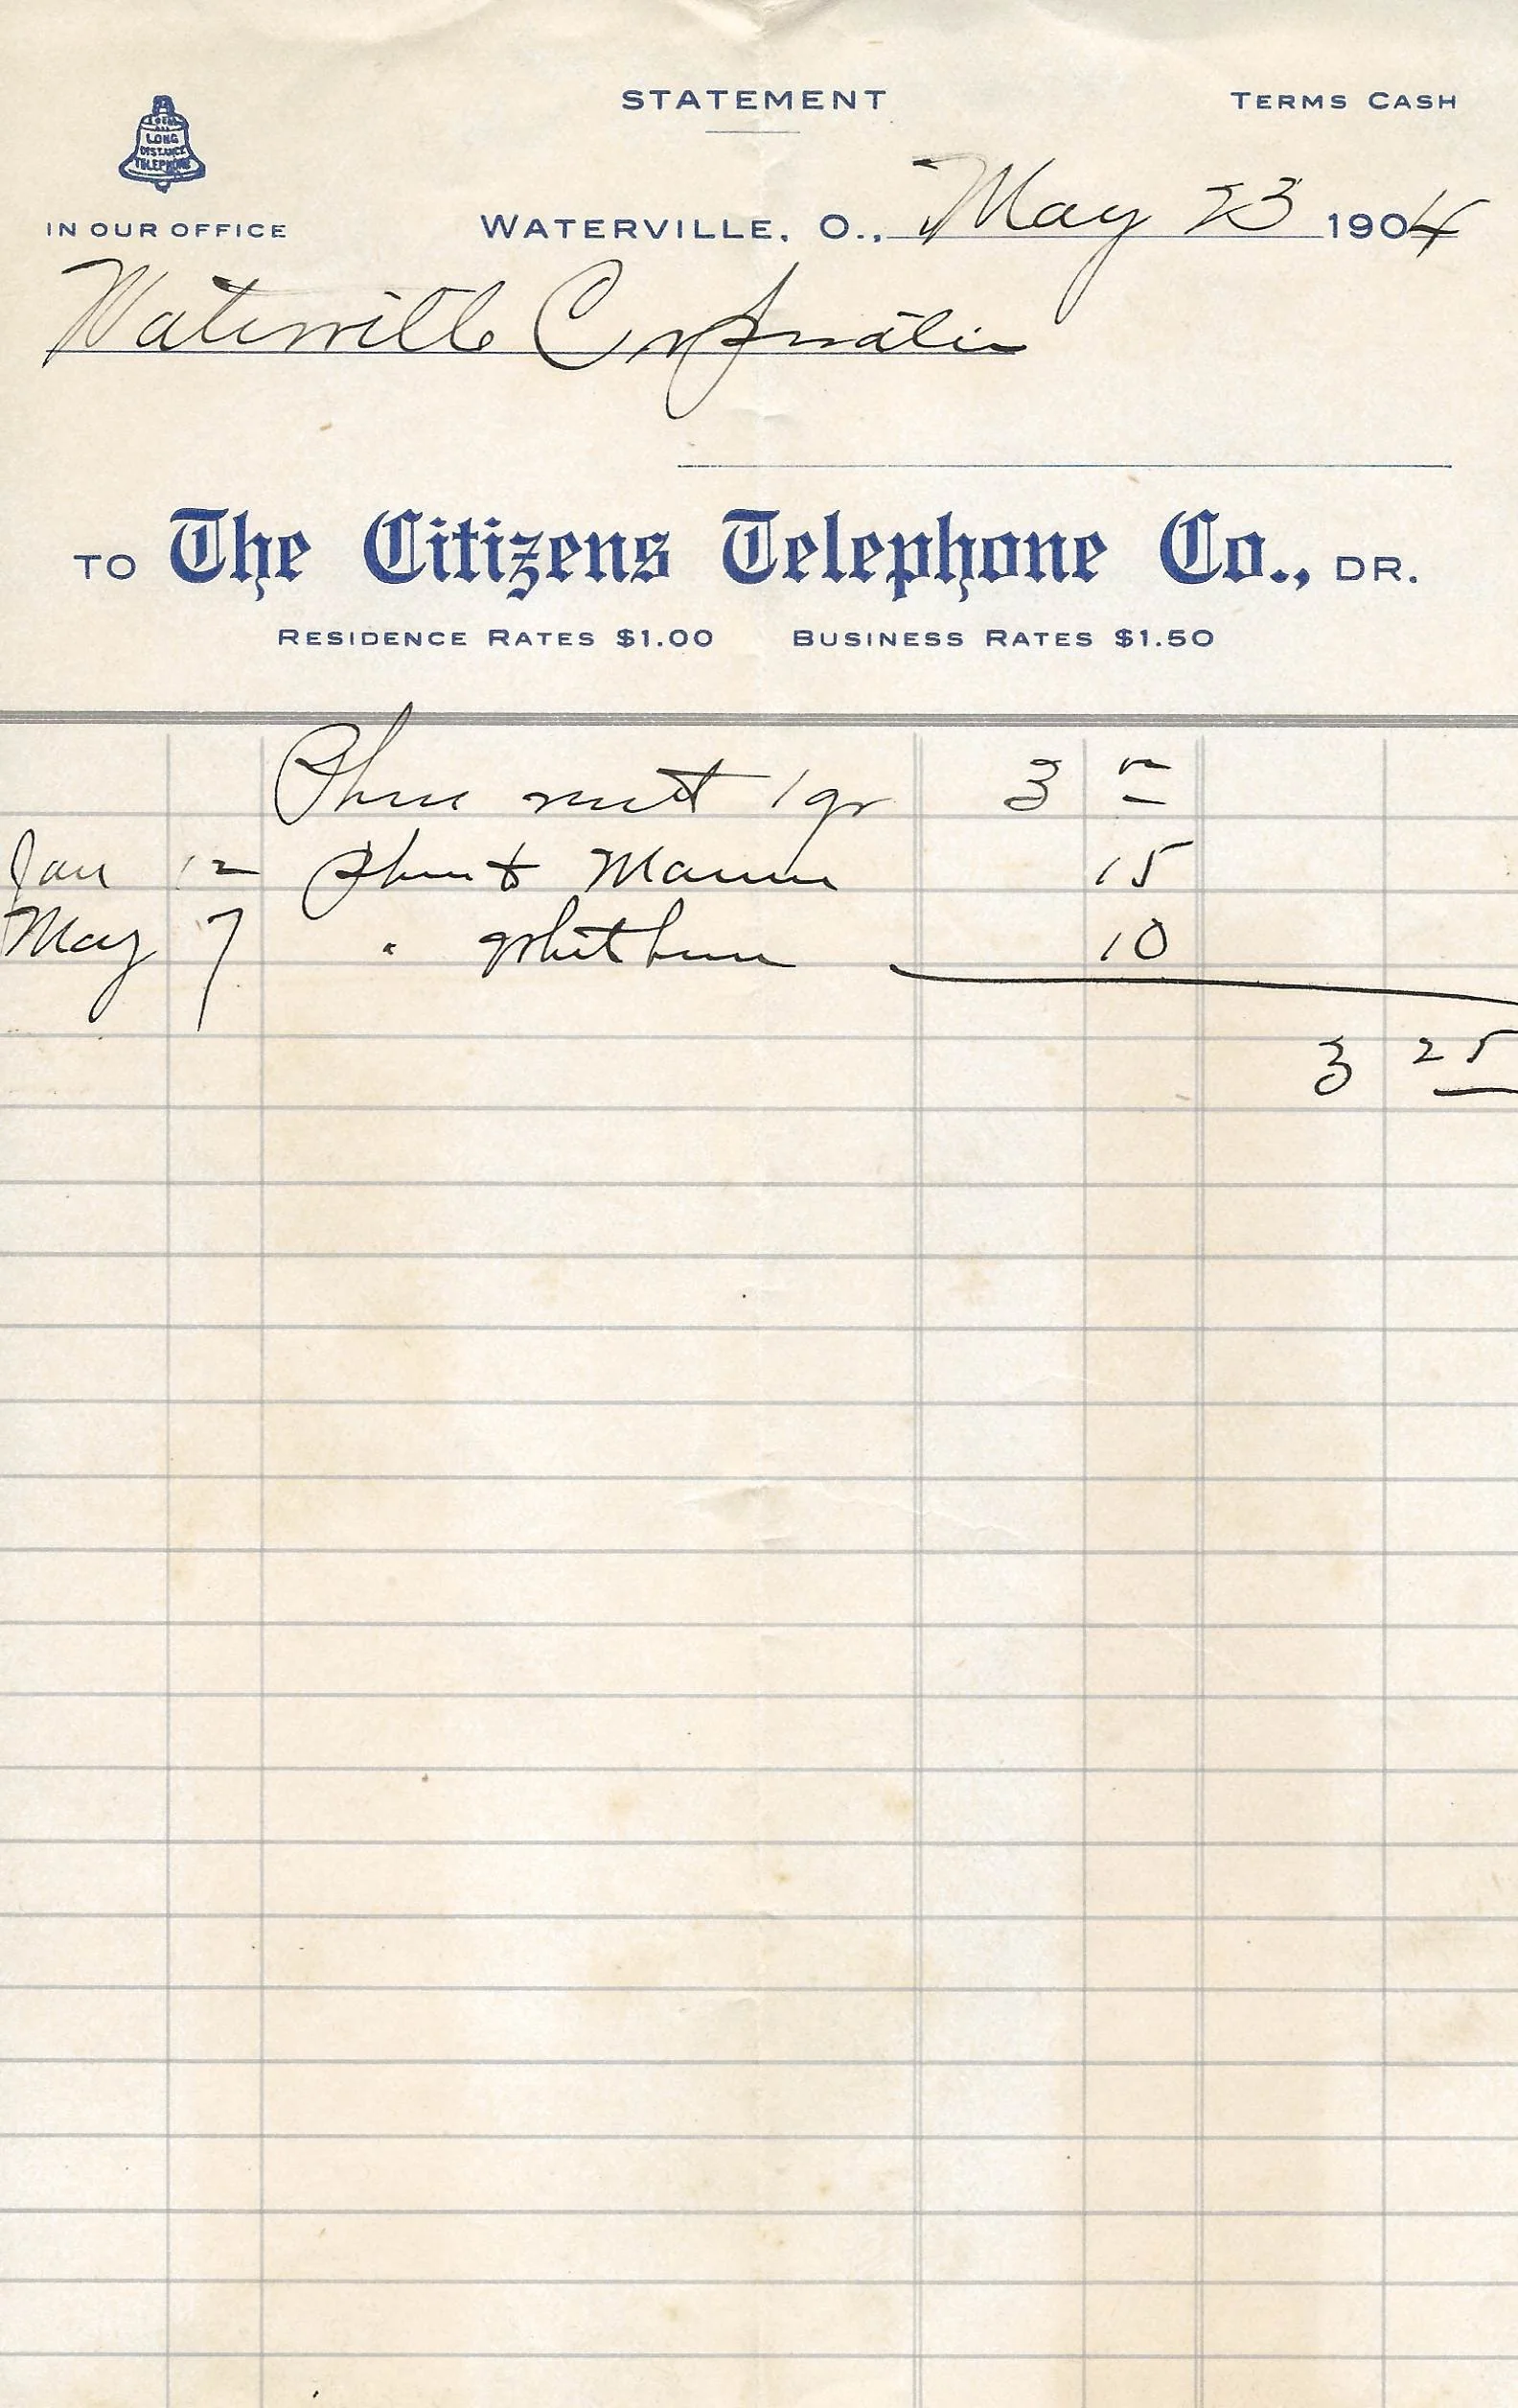 STATEMENT
TERMS CASH
LOCAL
AND
LONG
DISTANCE
TELEPHONE
IN OUR OFFICE
WATERVILLE, O., May 23 1904
Waterville Corporation
TO The Citizens Telephone Co., DR.
RESIDENCE RATES $1.00 BUSINESS RATES $1.50
Phone rent 1 qr 3
Jan 12 Phone to Maumee 15
May 7 " Whitehouse 10
3 25